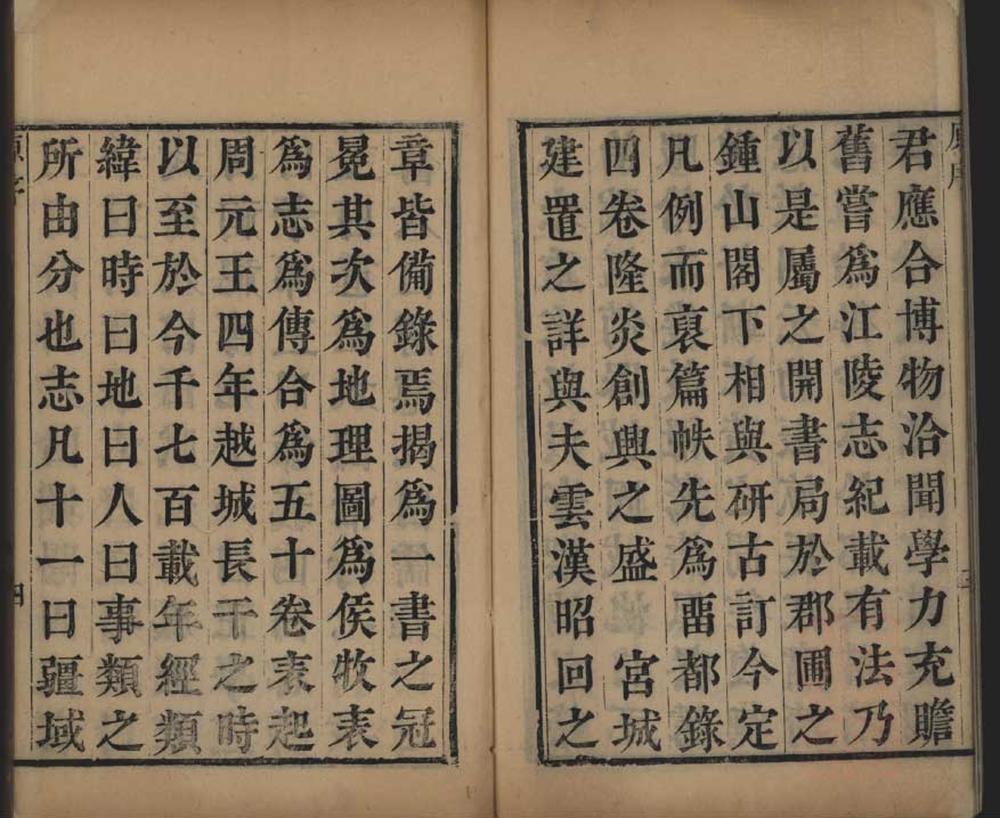 君應合博物洽聞學力充贍
舊嘗爲江陵志紀載有法乃
以是屬之開書局於郡圃之
鍾山閣下相與硏古訂今定
凡例而裒篇帙先爲畱都錄
四卷隆炎創興之盛宮城
建置之詳與夫雲漢昭回之
章皆備錄焉揭爲一書之冠
冕其次爲地理圖爲侯牧表
爲志爲傳合爲五十卷表起
周元王四年越城長干之時
以至於今千七百載年經類
緯曰時曰地曰人曰事類之
所由分也志凡十一曰疆域
四